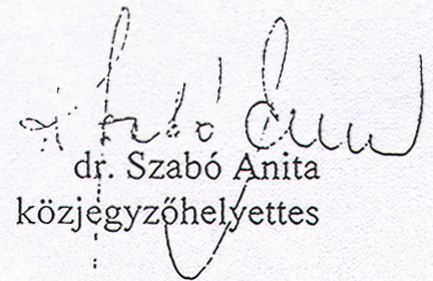 dr. Szabó Anita
közjegyzőhelyettes